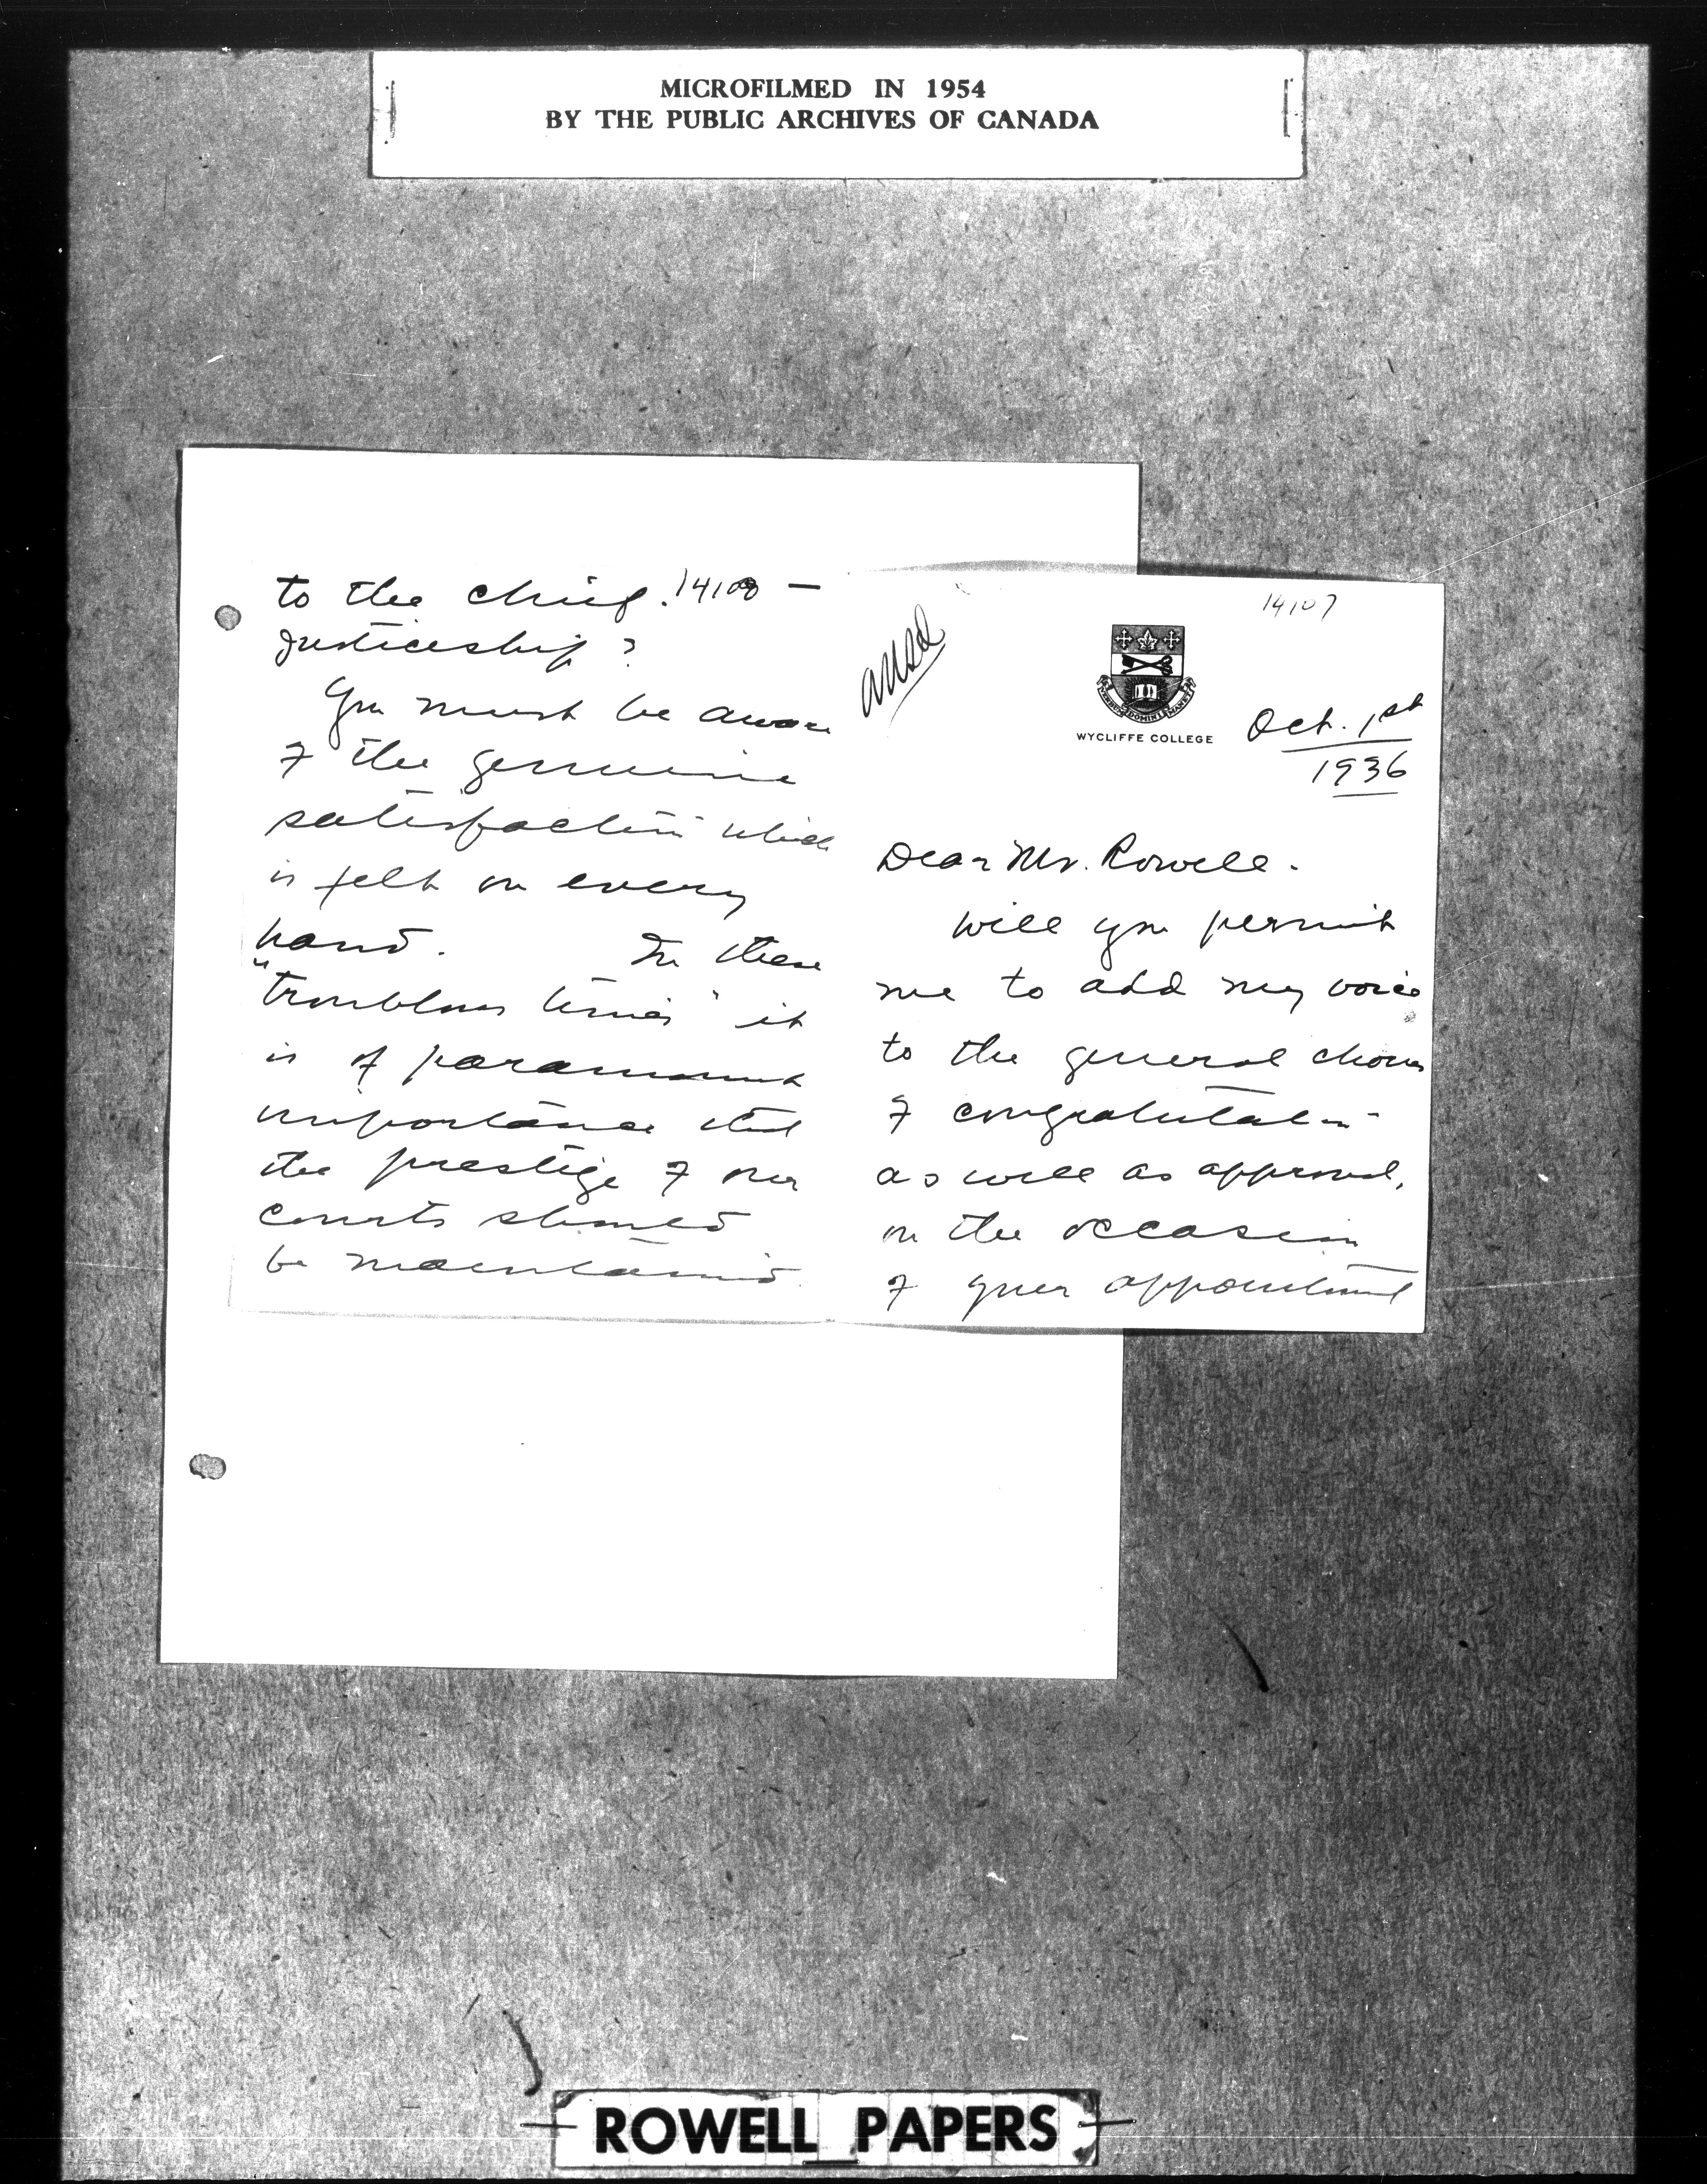 MICROFILMED IN 1954
BY THE PUBLIC ARCHIVES OF CANADA
14107
ansd
VERBUM DOMINI MANET
WYCLIFFE COLLEGE
Oct. 1st
1936
Dear Mr. Rowell.
Will you permit
me to add my voice
to the general chorus
of congratulation
as well as approval,
on the occasion
of your appointment
14108
to the Chief. —
Justiceship?
You must be aware
of the genuine
satisfaction which
is felt on every
hand. In these
"troublous times" it
is of paramount
importance that
the prestige of our
courts should
be maintained.
ROWELL PAPERS